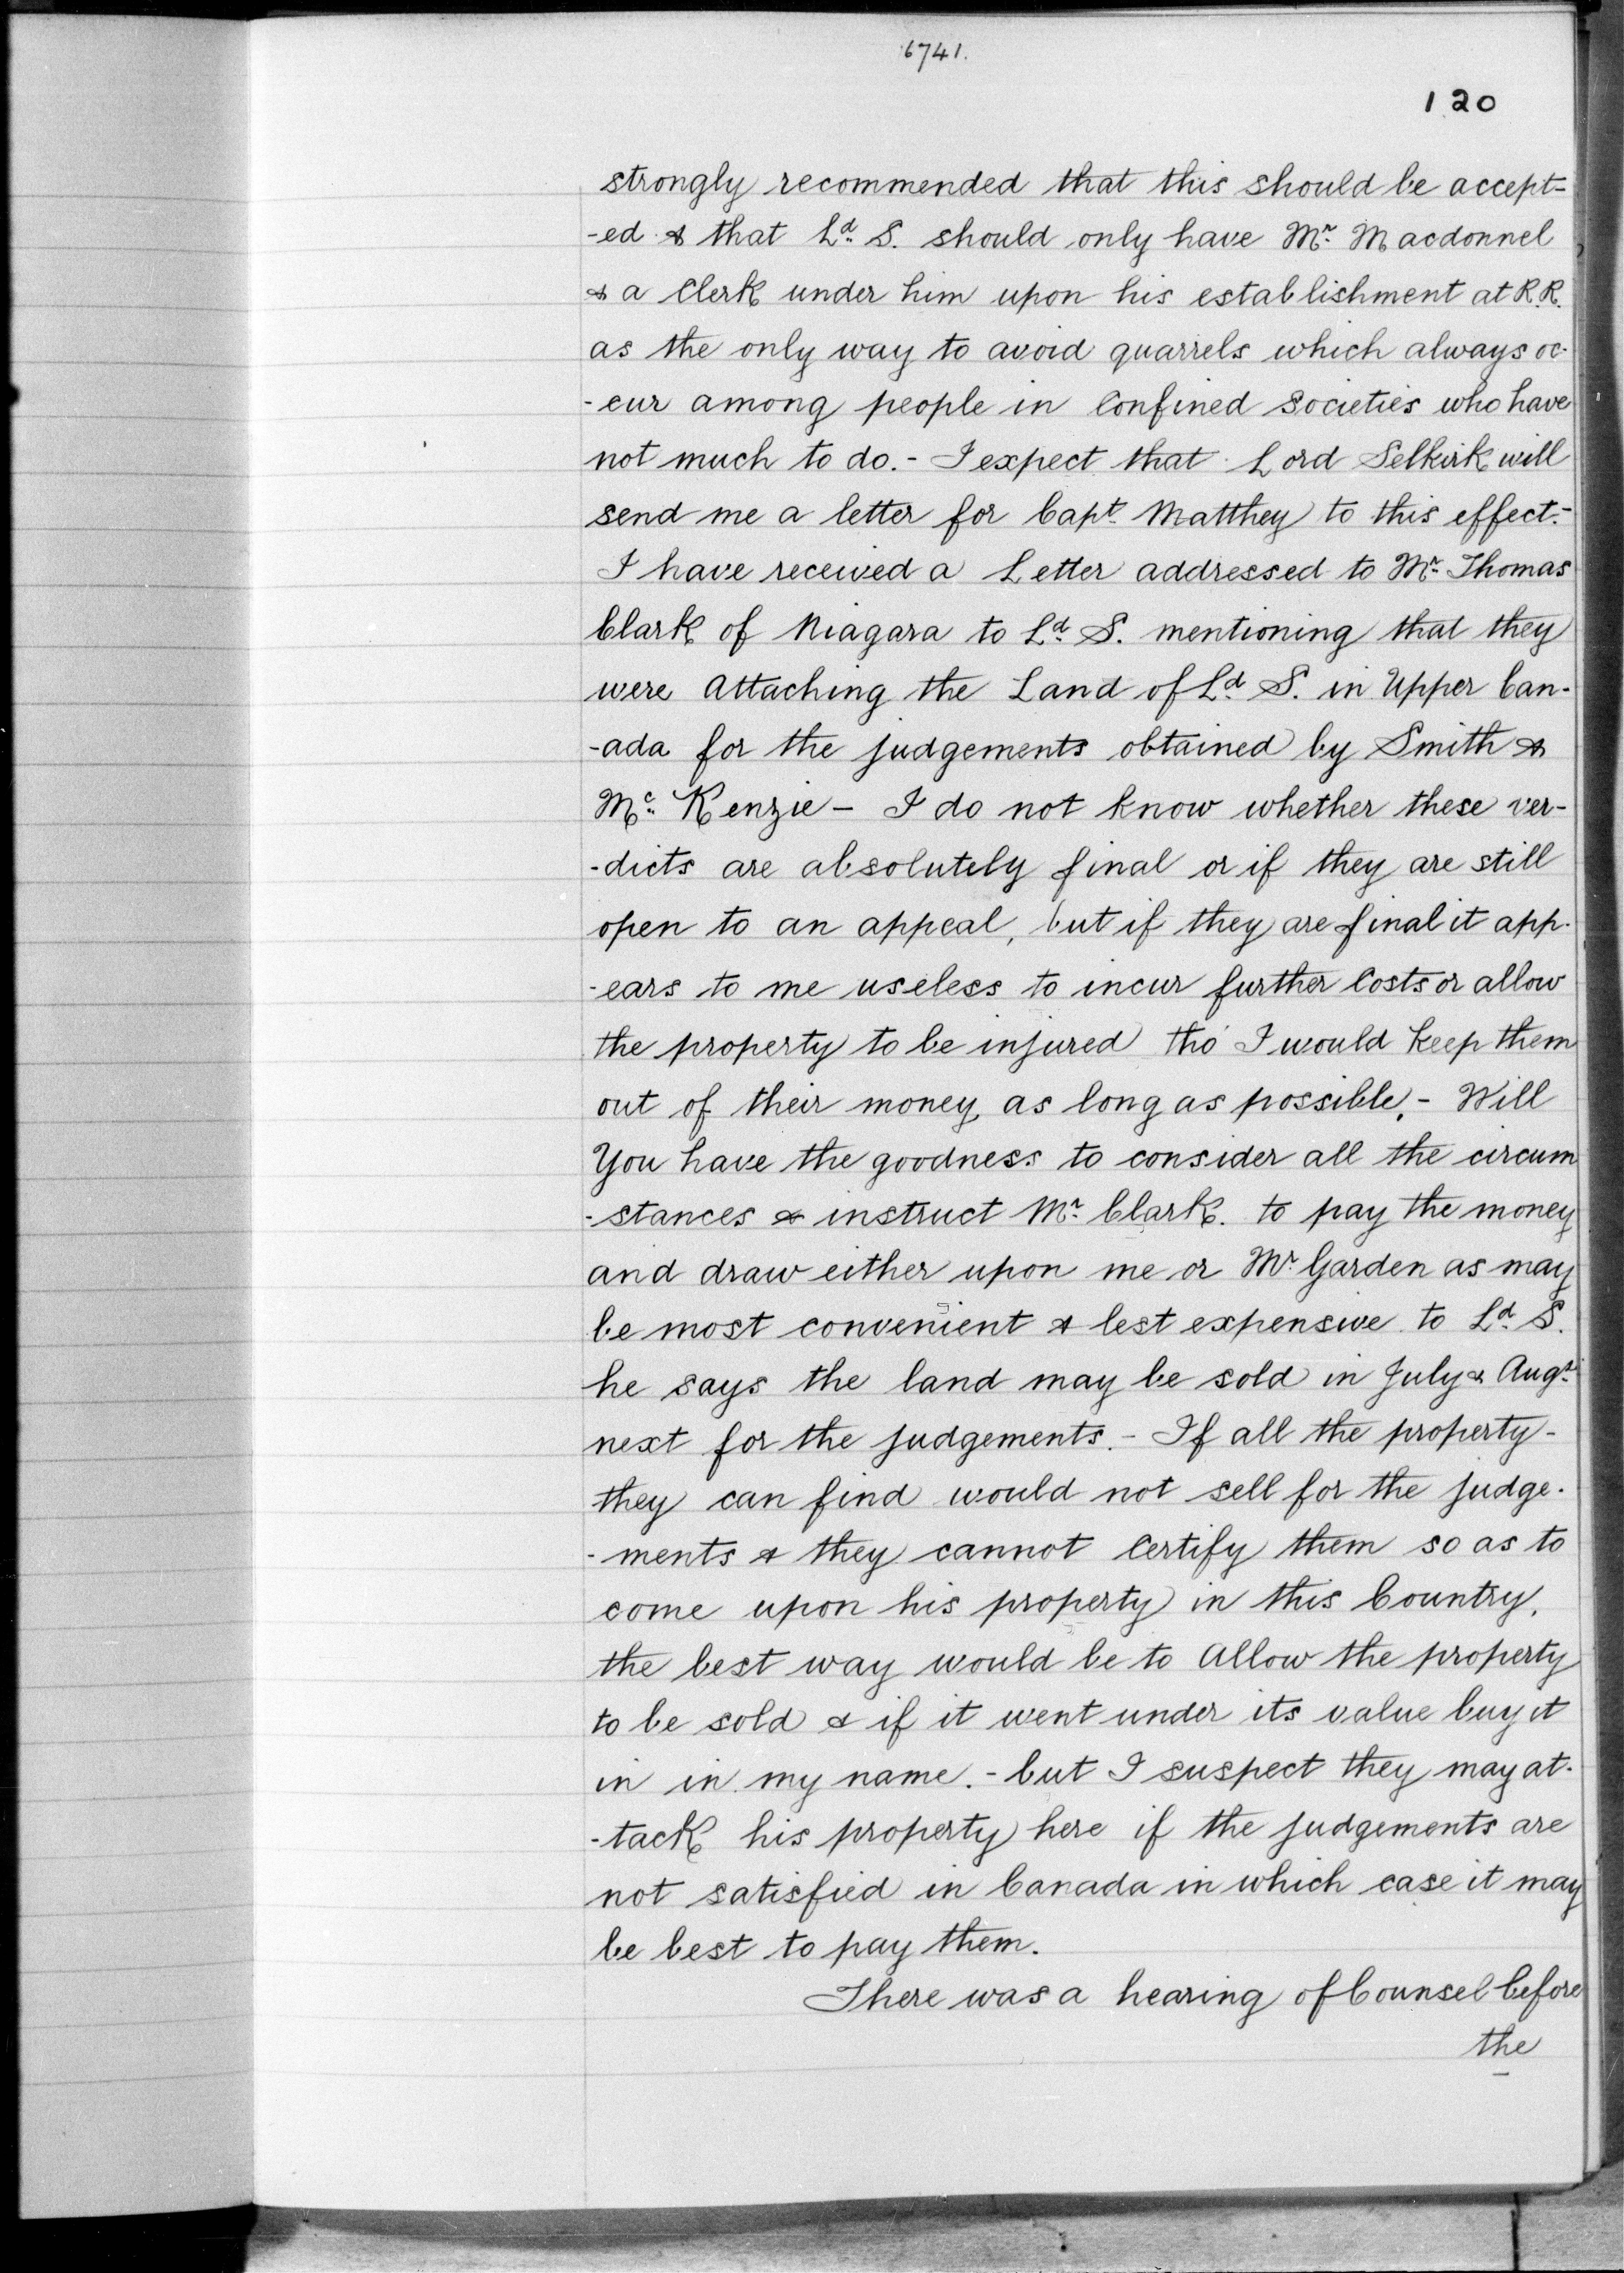 6741.
120
strongly recommended that this should be accept=
-ed & that Ld. S. should only have Mr. Macdonnel
& a Clerk under him upon his establishment at R.R.
as the only way to avoid quarrels which always oc-
-cur among people in Confined Societies who have
not much to do.- I expect that Lord Selkirk will
send me a letter for Capt. Matthey to this effect.-
I have received a Letter addressed to Mr. Thomas
Clark of Niagara to Ld. S. mentioning that they
were Attaching the Land of Ld. S. in Upper Can-
-ada for the judgements obtained by Smith &
Mc. Kenzie - I do not know whether these ver-
-dicts are absolutely final or if they are still
open to an appeal, but if they are final it app-
-ears to me useless to incur further Costs or allow
the property to be injured tho' I would keep them
out of their money, as long as possible.- Will
You have the goodness to consider all the circum
-stances & instruct Mr. Clark. to pay the money
and draw either upon me or Mr. Garden as may
be most convenient & lest expensive to Ld. S.
he says the land may be sold in July & Augt.
next for the judgements.- If all the property-
they can find would not sell for the judge-
-ments & they cannot Certify them so as to
come upon his property in this Country,
the best way would be to Allow the property
to be sold & if it went under its value buy it
in in my name.- but I suspect they may at-
-tack his property here if the judgements are
not satisfied in Canada in which case it may
be best to pay them.
There was a hearing of Counsel before
the